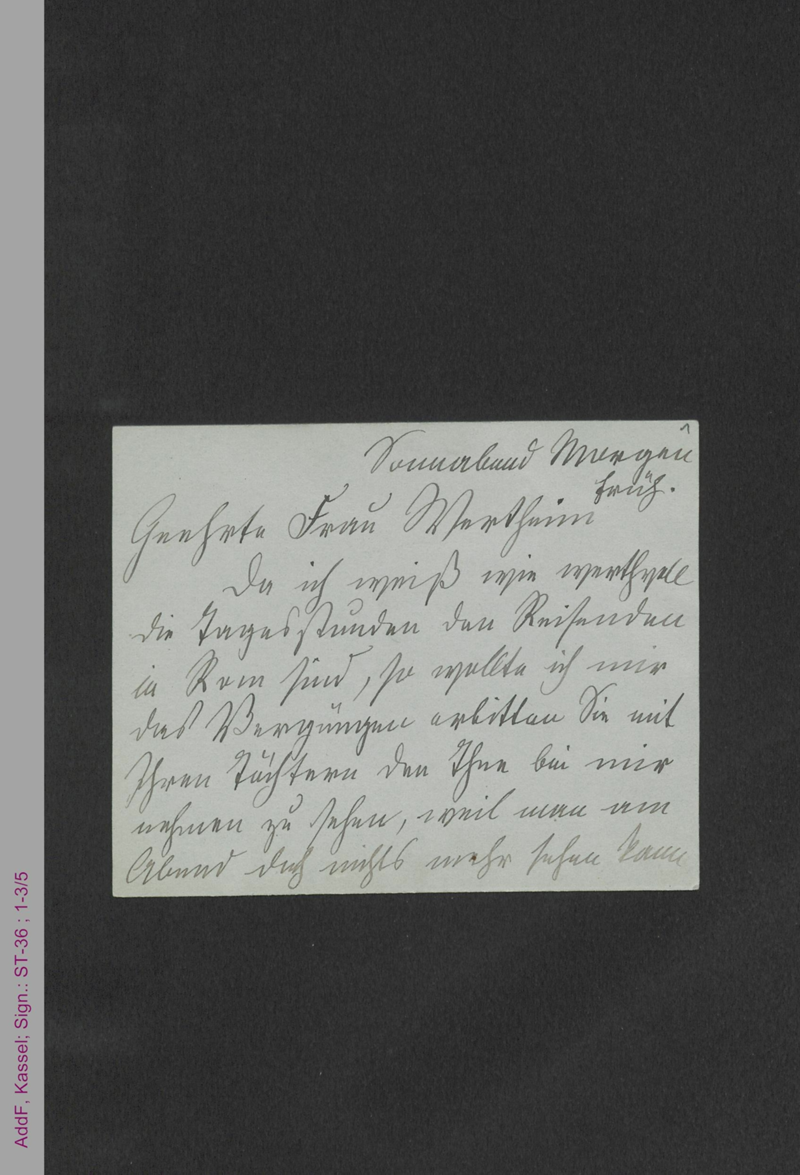 1
Sonnabend Morgen
früh.
Geehrte Frau Wertheim
Da ich weiß wie werthvoll
die Tagesstunden den Reisenden
in Rom sind, so wollte ich mir
das Vergnügen erbitten Sie mit
Ihren Töchtern den Thee bei mir
nehmen zu sehen, weil man am
Abend doch nichts mehr sehen kann
AddF, Kassel; Sign.: ST-36 ; 1-3/5